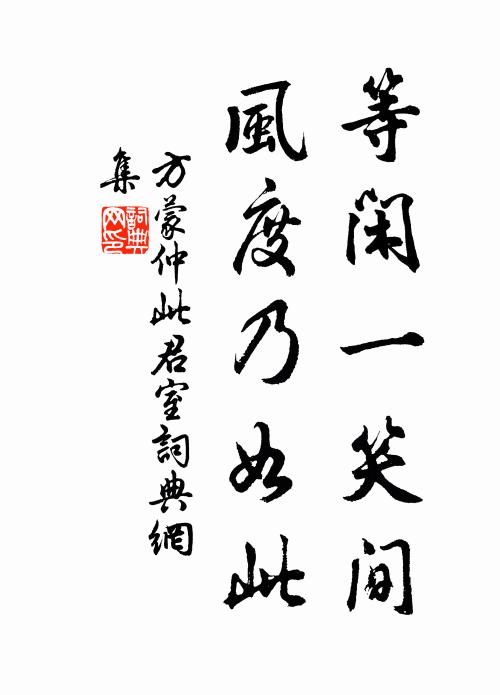 等闲一笑间
風度乃如此
方蒙仲此君室詞典網
集
詞典
网印